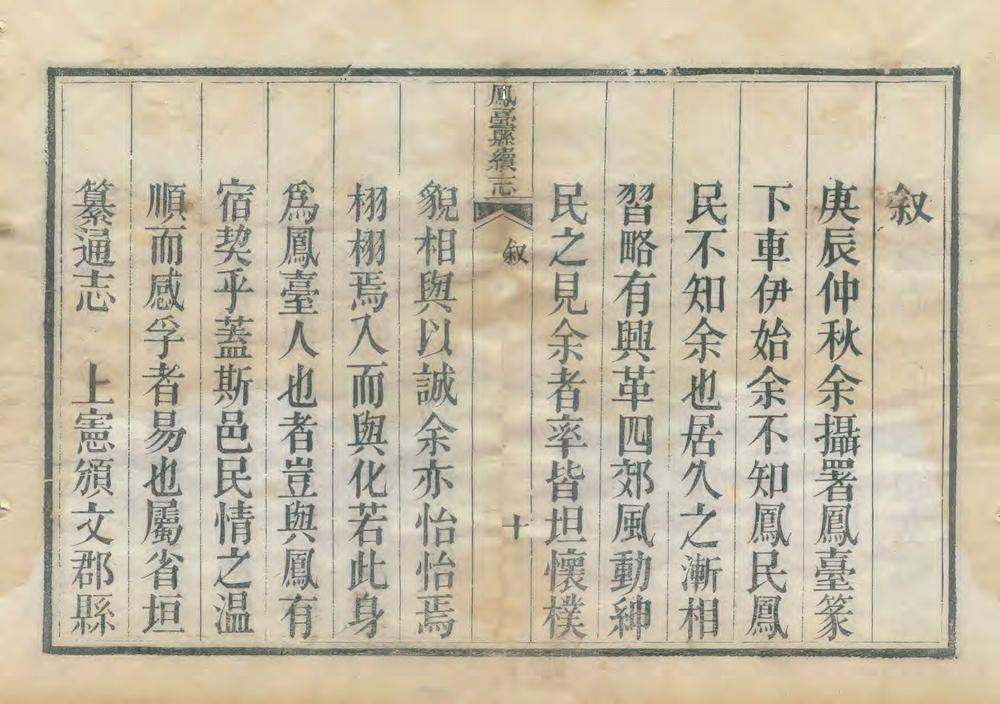 叙
庚辰仲秋余攝署鳳臺篆
下車伊始余不知鳳民鳳
民不知余也居久之漸相
習略有興革四郊風動紳
民之見余者率皆坦懷樸
鳳臺縣續志
叙
十
貌相與以誠余亦怡怡焉
栩栩焉入而與化若此身
爲鳳臺人也者豈與鳳有
宿契乎蓋斯邑民情之温
順而感孚者易也屬省垣
纂通志　上憲頒文郡縣